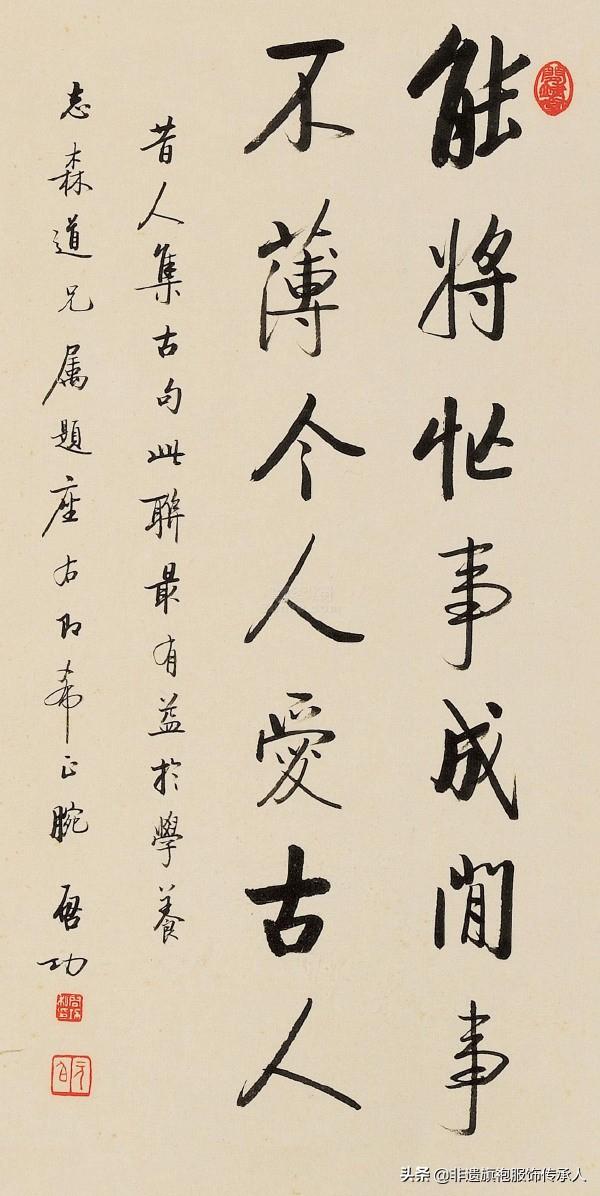 能將忙事成閒事
不薄今人愛古人
昔人集古句此聯最有益於學養
志森道兄属題座右即希正腕 啓功
头条 @非遗旗袍服饰传承人